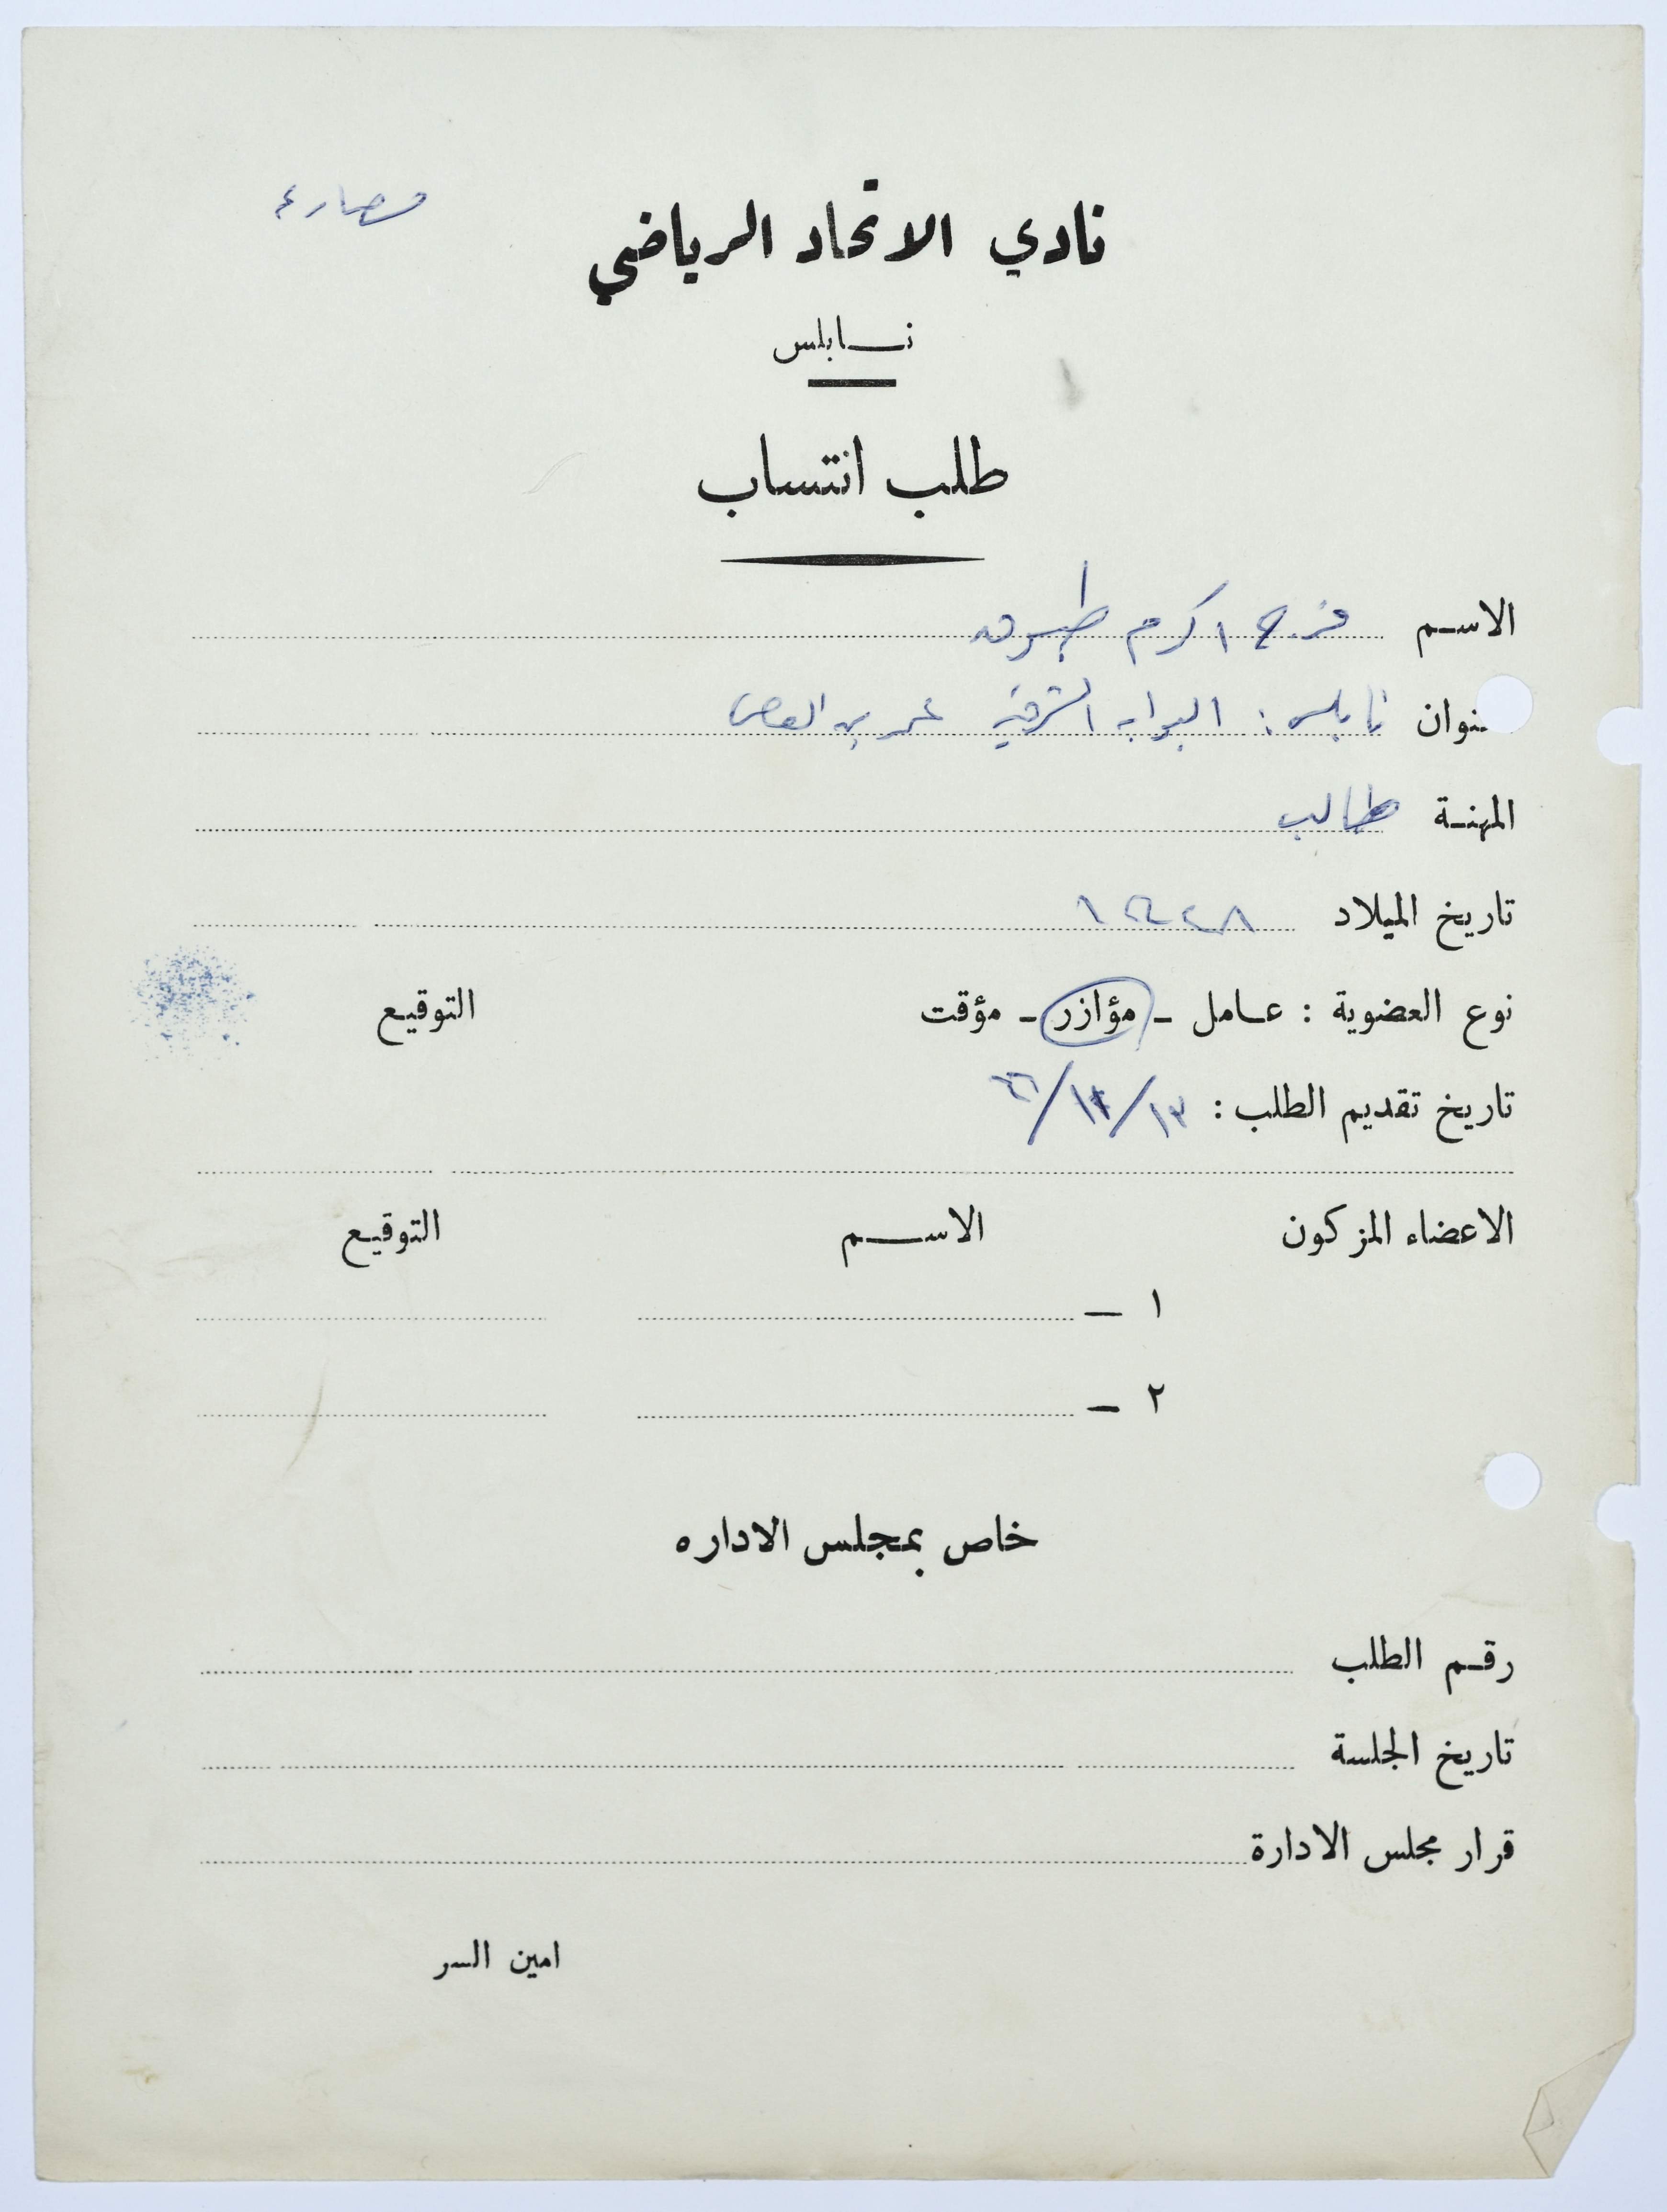 مصارعه
نادي الاتحاد الرياضي
نابلس
طلب انتساب
الاسم فرج اكرم طبوق
العنوان نابلس: البوابه الشرقيه عمر بن العاص
المهنة طالب
تاريخ الميلاد
نوع العضوية : عامل - مؤازر - مؤقت التوقيع
تاريخ تقديم الطلب :
الاعضاء المزكون الاسم التوقيع
١ -
٢ -
خاص بمجلس الاداره
رقم الطلب
تاريخ الجلسة
قرار مجلس الادارة
امين السر